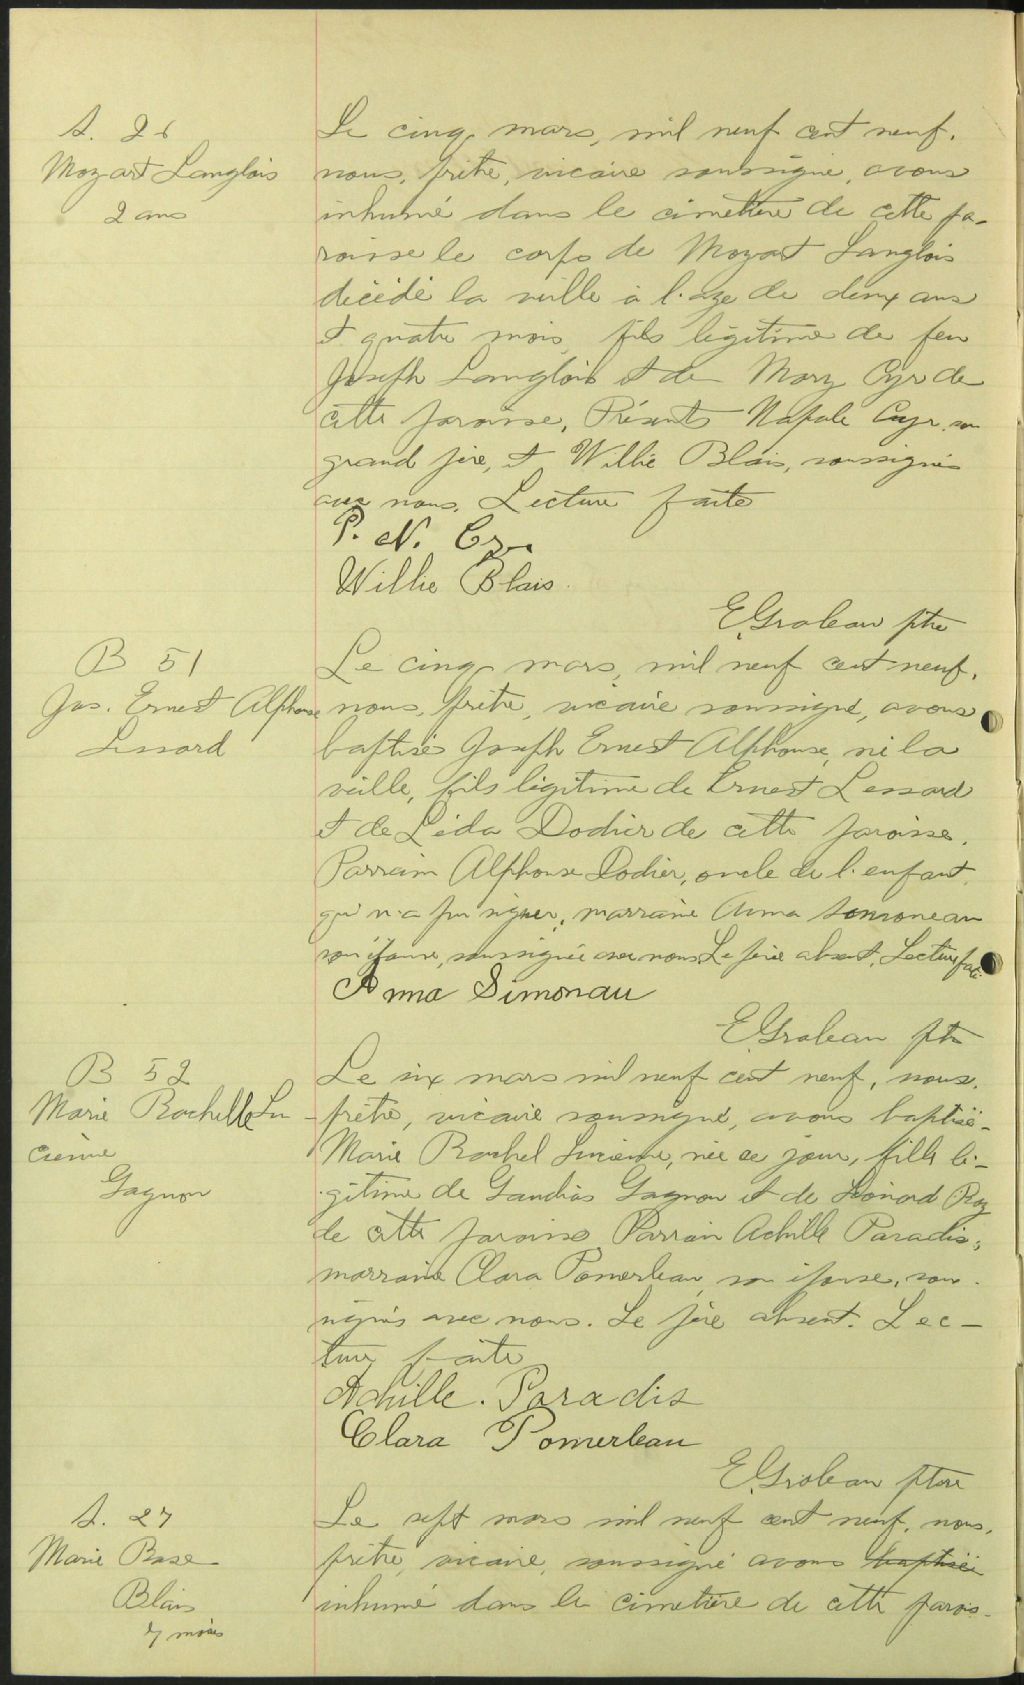 S. 26
Mozart Langlois
2 ans
Le cinq mars, mil neuf cent neuf,
nous, prêtre, vicaire soussigné, avons
inhumé dans le cimetière de cette pa-
roisse le corps de Mozart Langlois
décédé la veille à l'age de deux ans
et quatre mois, fils légitime de feu
Joseph Langlois et de Mary Cyr de
cette paroisse, Présents Napole Cyr son
grand père, et Willie Blais, soussignés
avec nous. Lecture faite
P. N. Cyr
Willie Blais.
E. Groleau ptre
B 51
Jos. Ernest Alphonse
Lessard
Le cinq mars, mil neuf cent neuf,
nous, prêtre, vicaire soussigné, avons
baptisé Joseph Ernest Alphonse, né la
veille, fils légitime de Ernest Lessard
et de Léda Dodier de cette paroisse.
Parrain Alphonse Dodier, oncle de l'enfant,
qui n'a pu signer, marraine Anna Simoneau
son épouse, soussignée avec nous Le père absent, Lecture faite
Anna Simonau
E. Groleau ptre
B 52
Marie Rachelle Lu-
cienne
Gagnon
Le six mars mil neuf cent neuf, nous,
prêtre, vicaire soussigné, avons baptisé
Marie Rachel Lucienne, née ce jour, fille lé-
gitime de Gaudias Gagnon et de Léonard Roy
de cette paroisse Parrain Achille Paradis,
marraine Clara Pomerleau, son épouse, sous-
signés avec nous. Le père absent. Lec-
ture faite
Achille. Paradis
Clara Pomerleau
E. Groleau ptre
S. 27
Marie Rose
Blais
7 mois
Le sept mars mil neuf cent neuf, nous,
prêtre, vicaire, soussigné avons baptisé
inhumé dans le cimetière de cette parois-